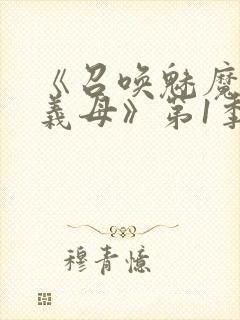 《召唤魅魔
義母》第1季
穆青憶